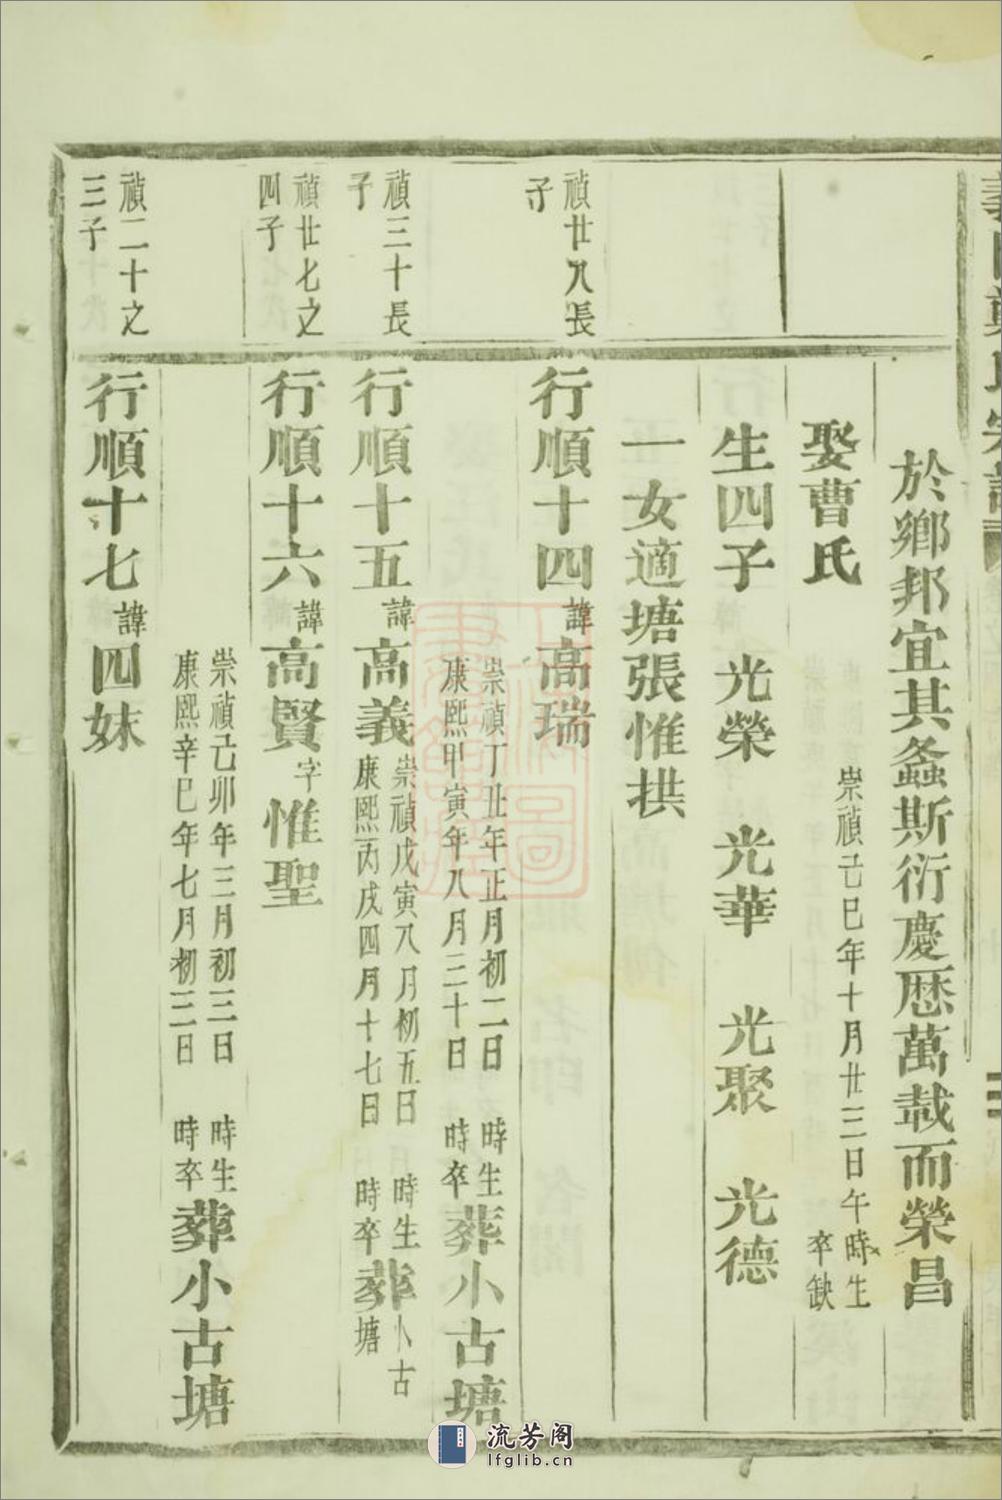 於鄉邦宜其螽斯衍慶歷萬載而榮昌
娶曹氏 崇禎己巳年十月廿三日午時生 卒缺
生四子 光榮 光華 光聚 光德
一女適塘張惟拱
禎廿八長子
行順十四諱高瑞
崇禎丁丑年正月初二日 時生
康熙甲寅年八月三十日 時卒
葬小古塘
禎三十長子
行順十五諱高義
崇禎戊寅八月初五日 時生
康熙丙戌四月十七日 時卒
葬小古塘
禎廿七之四子
行順十六諱高賢字惟聖
崇禎己卯年三月初三日 時生
康熙辛巳年七月初三日 時卒
葬小古塘
禎二十之三子
行順十七諱四妹
流芳阁
lfglib.cn